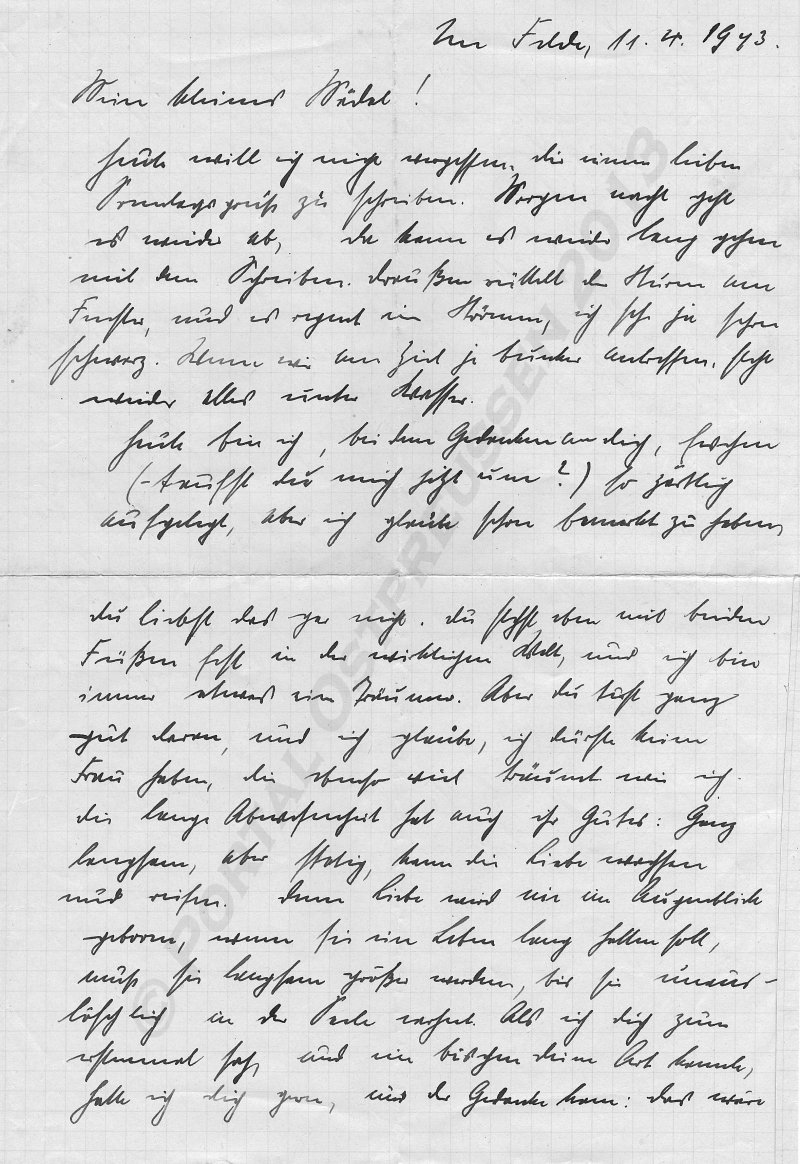 Im Felde, 11. 4. 1943.
Mein kleines Mädel!
Heute will ich nicht vergessen, dir einen lieben
Sonntagsgruß zu schreiben. Morgen nacht geht
es wieder ab, da kann es wieder lang gehen
mit dem Schreiben. Draußen rüttelt der Sturm am
Fenster, und es regnet in Strömen, ich seh ja schon
schwarz. Wenn wir am Ziel je Bunker antreffen, steht
wieder alles unter Wasser.
Heute bin ich, bei dem Gedanken an dich,
(- taufst du mich jetzt um?) so zärtlich
aufgelegt, aber ich glaube schon bemerkt zu haben,
du liebst das gar nicht. Du stehst eben mit beiden
Füßen fest in der wirklichen Welt, und ich bin
immer etwas ein Träumer. Aber du tust ganz
gut daran, und ich glaube, ich dürfte keine
Frau haben, die ebenso viel träumt wie ich.
Die lange Abwesenheit hat auch ihr Gutes: Ganz
langsam, aber stetig, kann die Liebe wachsen
und reifen. Denn Liebe wird nie im Augenblick
geboren, wenn sie ein Leben lang halten soll,
muß sie langsam größer werden, bis sie unaus-
löschlich in der Seele wohnt. Als ich dich zum
erstenmal sah, und ein bischen deine Art kannte,
hatte ich dich gern, und der Gedanke kam: das wäre
© PORTAL OSTPREUSSEN 2013